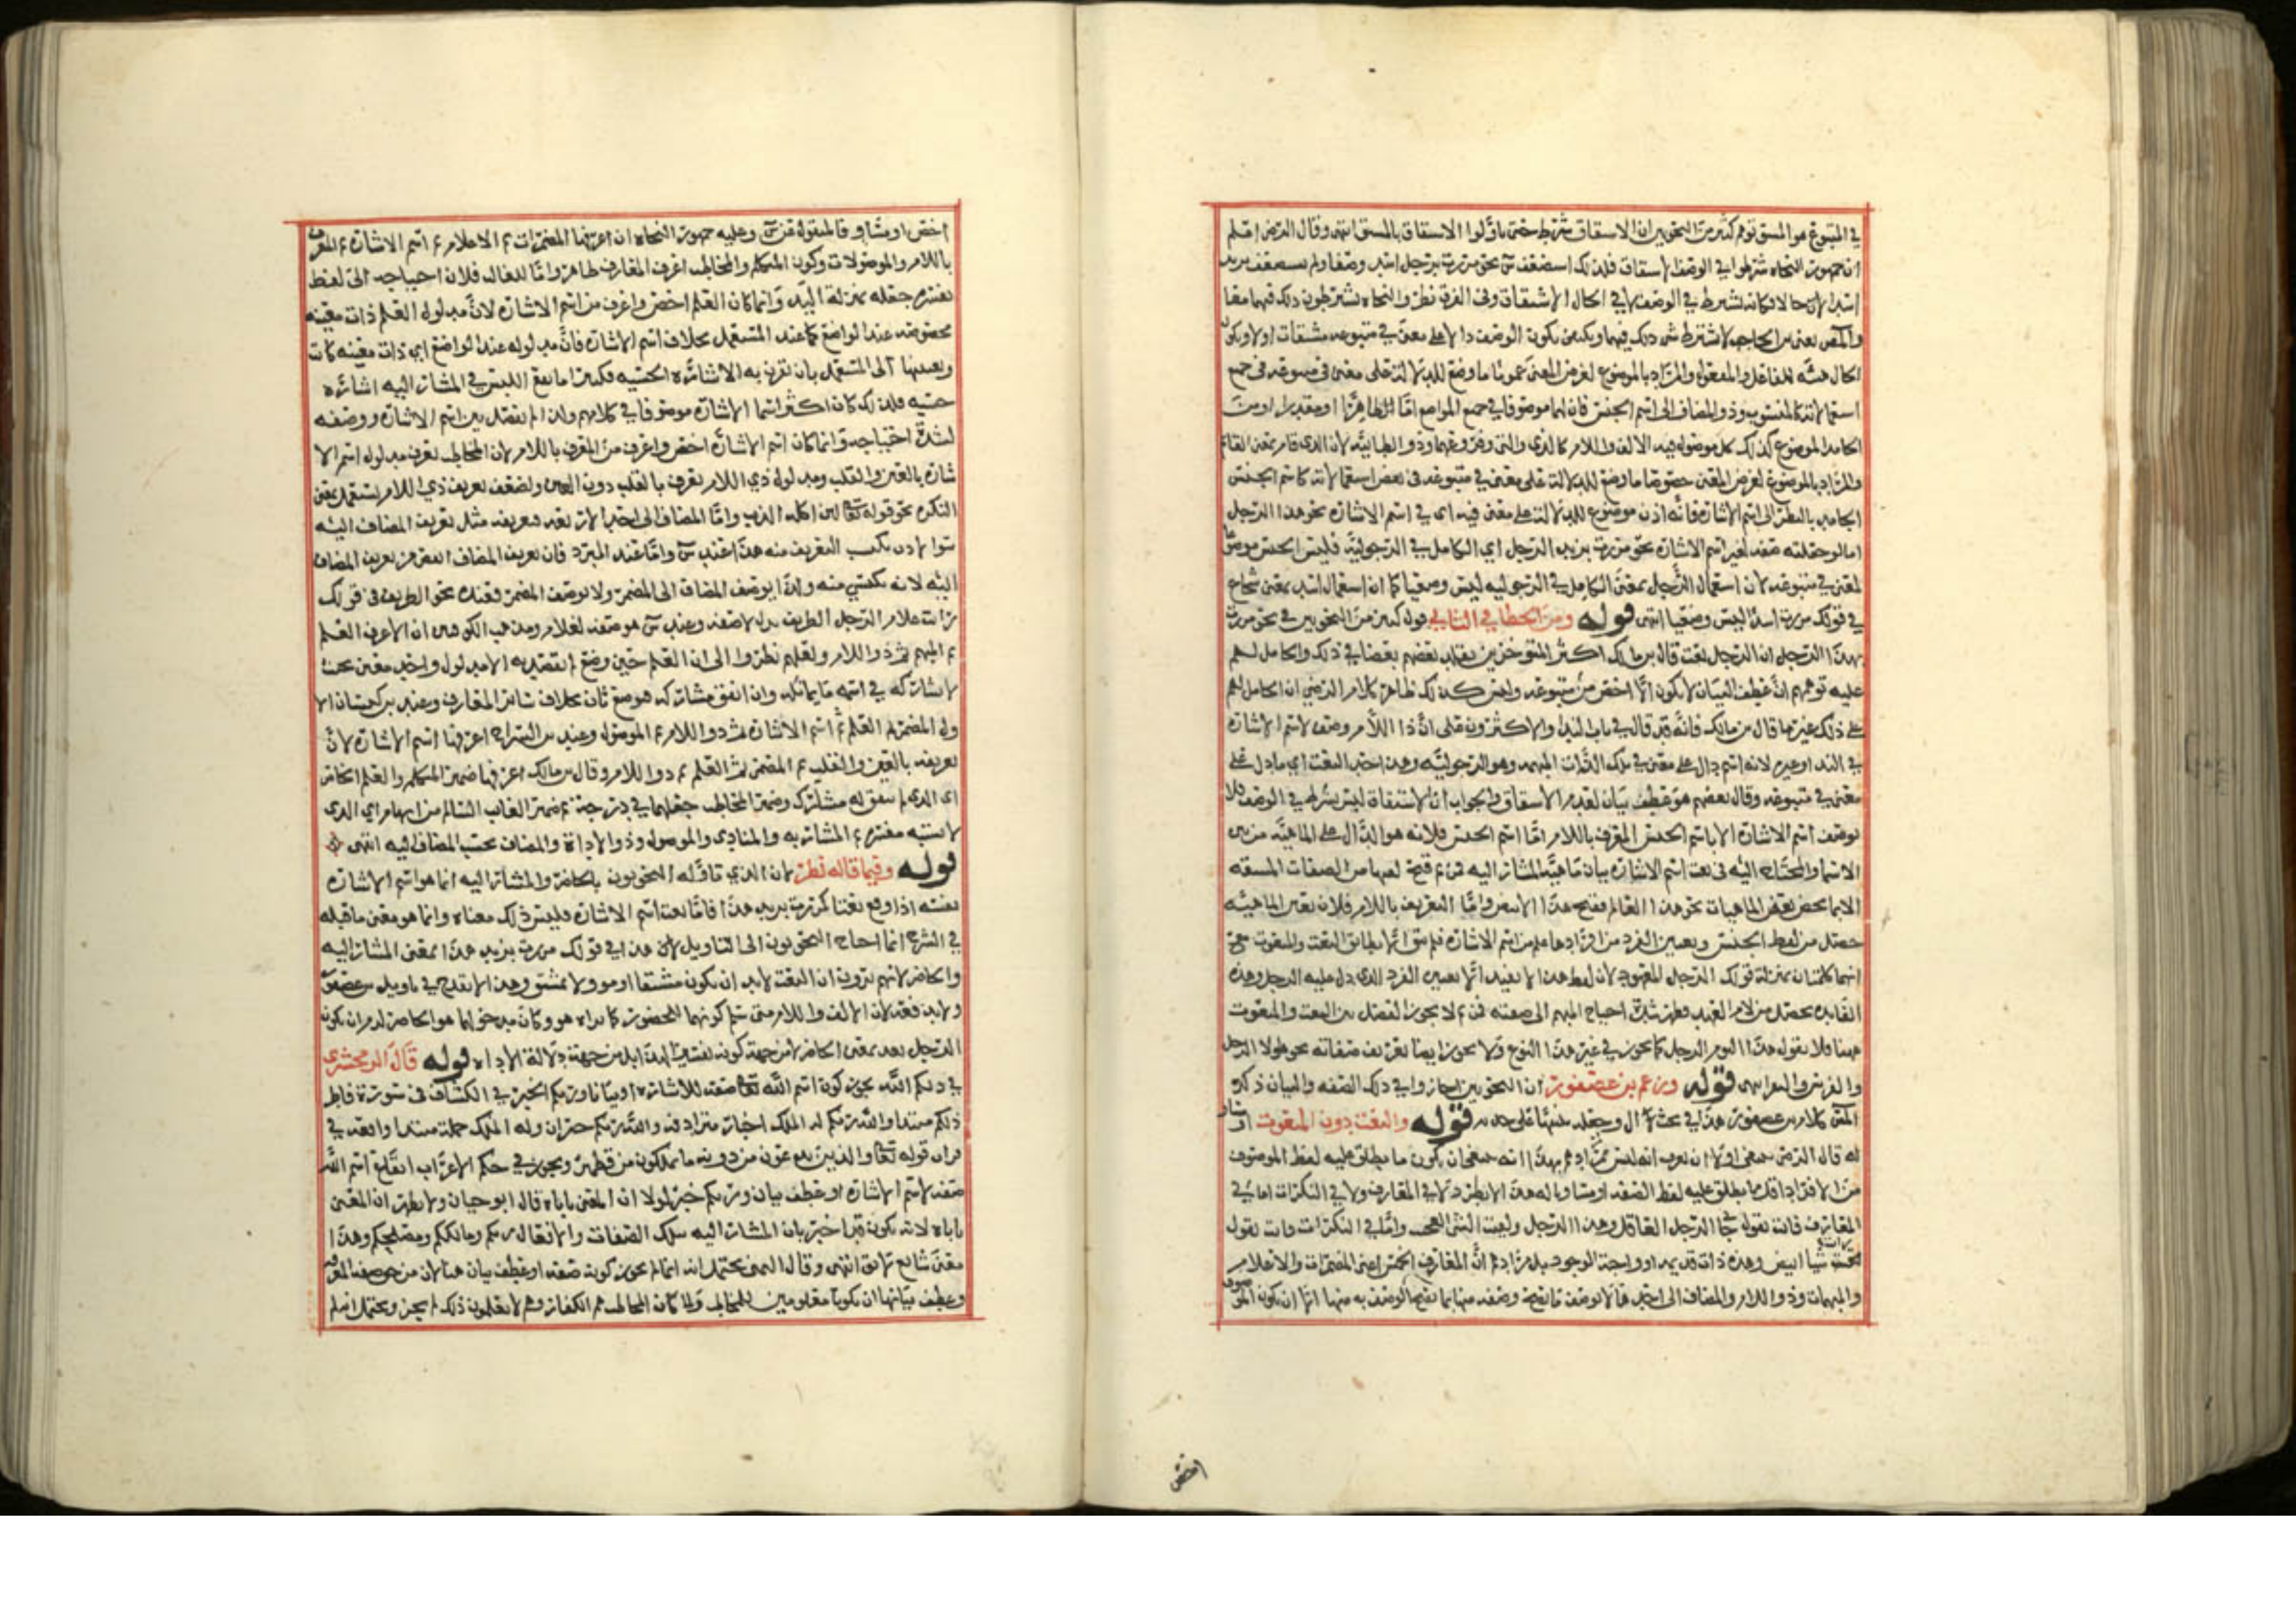 في المتبوع هو المسق توهم كثير من النحويين ان الاستقاق شرط حتى تاوّلوا الاستقاق بالمسق انتهى وقال الرضى اعلم
ان جمهور النحاه شرطوا في الوصف الاستقاق فلذلك استضعف س نحو مررت برجل اسد وصفا ولم يستضعف بزيد
اسدا حالا فكانه يشترط في الوصف لا في الحال الاشتقاق وفي الفرق نظر والنحاه يشترطون ذلك فيهما معا
والمص يعنى بن الحاجب لا يشترط ذلك فيهما ويكتفى بكون الوصف دالا على معنى في متبوعه مشتقا كان اولا وبكون
الحال هيئه للفاعل والمفعول والمراد بالموضوع لغرض المعنى عموما ما وضع للدلالة على معنى فى متبوعه فى جميع
استعمالاته كالمنسوب وذو المضاف الى اسم الجنس فان لهما موصوفا في جميع المواضع اما ظاهرا او مقدرا ومن
الجامد الموضوع كذلك كل موصول فيه الالف واللام كالذى والتى وفروعهما وذو الطائيه لان الذى قام بمعنى القائم
والمراد بالموضوع لغرض المعنى خصوصا ما وضع للدلالة على معنى في متبوعه فى بعض استعمالاته كاسم الجنس
الجامد بالنظر الى اسم الاشاره فانه اذن موضوع للدلالة على معنى فيه اى في اسم الاشاره نحو هذا الرجل
اما لو جعلته صفه لغير اسم الاشاره نحو مررت بزيد الرجل اي الكامل في الرجوليّة فليس الجنس موضوعا
لمعنى في متبوعه لان استعمال الرجل بمعنى الكامل في الرجوليه ليس وضعيا كما ان استعمال اسد بمعنى شجاع
في قولك مررت برجل اسد ليس وضعيا انتهى قوله ومن الخطا في الثاني قول كثير من النحويين في نحو مررت
بهذا الرجل ان الرجل نعت قال بن مالك اكثر المتاخرين يقلد بعضهم بعضا في ذلك والحامل لهم
عليه توهمهم ان عطف البيان لا يكون الا اخص من متبوعه وليس كذلك ظاهر كلام الرضى ان الحامل لهم
على ذلك غير ما قال بن مالك فانه قد قال في باب النداء والاكثرون على ان ذا اللام وصف لاسم الاشاره
في النداء وغيره لانه اسم دال على معنى في تلك الذات المبهمه وهو الرجوليّه وهذا حد النعت اي ما دل على
معنى في متبوعه وقال بعضهم هو عطف بيان لعدم الاستقاق والجواب ان الاستقاق ليس بشرط في الوصف ولا
يوصف اسم الاشاره الا باسم الجنس المعرف باللام امّا اسم الجنس فلانه هو الدال على الماهيّه من بين
الاسماء والمحتاج اليه فى نعت اسم الاشاره بيان ماهيّة المشار اليه فمن ثم قبح نعتها من الصفات المشتقه
الا بما يخص بعض الماهيات نحو هذا العالم وقبح هذا الابيض وامّا التعريف باللام فلان تعيين الماهيّه
حصل من لفظ الجنس وتعيين الفرد من افرادها علم من اسم الاشاره فلم يبق الا تطابق النعت والمنعوت
لانهما كلمتان بمنزلة قولك الرجل المعهود لان لفظ هذا لا يفيد الا تعيين الفرد الذى دل عليه الرجل وهذه
الفايده تحصل من لام العهد فظهر شدّة احتياج المبهم الى صفته فمن ثم لا يجوز الفصل بين النعت والمنعوت
ههنا فلا يقول هذا اليوم الرجل كما يجوز في غير هذا النوع ولا يجوز ايضا تفريق صفاته نحو هولا الرجل
والفرس والبعير انتهى قوله وزعم بن عصفور ان النحويين اجازوا في ذلك الصفه والبيان ذكر
المص كلام بن عصفور هذا في بحث ال وجعله مبنيا على قوله والنعت دون المنعوت او مساو
له قال الرضى ينبغى اولا ان يعرف انه ليس مرادهم بهذا انه ينبغى ان يكون ما يطلق عليه لفظ الموصوف
من الافراد اقل مما يطلق عليه لفظ الصفه او مساويا له هذا لا يطرد لا في المعارف ولا في النكرات اما في
المعارف فانت تقول جاء الرجل العاقل وهذا الرجل ولقيت الشئ العجيب وامّا في النكرات فانت تقول
رايت شيا ابيض وهذه ذات قديمه او واجبة الوجود بل مرادهم ان المعارف الخمس اعنى المضمرات والاعلام
والمبهمات وذو اللام والمضاف الى احدها لا يوصف ما يصح وصفه منها بما يصح الوصف به منها الا ان يكون الموصوف
اخص
اخص او مساو قالمنقول عن س وعليه جمهور النحاه ان اعرفها المضمرات ثم الاعلام ثم اسم الاشاره ثم المعرف
باللام والموصولات وكون المتكلم والمخاطب اعرف المعارف ظاهر وامّا الغائب فلان احتياجه الى لفظ
يفسره جعله بمنزلة اليد وانما كان العلم اخص واعرف من اسم الاشاره لانّ مدلول العلم ذات معينه
مخصوصه عند الواضع كما عند المستعمل بخلاف اسم الاشاره فانّ مدلوله عند الواضع اي ذات معينه كانت
وتعيينها الى المستعمل بان تقرن به الاشاره الحسيه فكثيرا ما يقع اللبس في المشار اليه اشاره
حسيه فلذلك كان اكثر اسما الاشاره موصوفا في كلامهم ولذا لم يفصل بين اسم الاشاره ووصفه
لشدّة احتياجه وانما كان اسم الاشاره اخص واعرف من المعرف باللام لان المخاطب يعرف مدلول اسم الا
شاره بالعين والقلب ومدلول ذي اللام يعرف بالقلب دون العين ولضعف تعريف ذي اللام يستعمل بمعنى
النكره نحو قوله تعالى لئن اكله الذيب وامّا المضاف الى احدها فتعريفه مثل تعريف المضاف اليه
سوا لانه يكتسب التعريف منه هذا عند س وامّا عند المبرد فان تعريف المضاف انقص من تعريف المضاف
اليه لانه يكتسي منه ولذا يوصف المضاف الى المضمر ولا يوصف المضمر فعنده نحو الظريف فى قولك
رايت غلام الرجل الظريف بدل لا صفه وعند س هو صفه لغلام ومذهب الكوفيين ان الاعرف العلم
ثم المبهم ثم ذو اللام ولعلهم نظروا الى ان العلم حين وضع لم يقصد به الا مدلول واحد معين بحيث
لا يشاركه في اسمه ما يماثله وان اتفق مشاركه فهو وضع ثان بخلاف سائر المعارف وعند بن كيسان الا
ول المضمر ثم العلم ثم اسم الاشاره ثم ذو اللام ثم الموصول وعند بن السراج اعرفها اسم الاشاره لانّ
تعريفه بالعين والقلب ثم المضمر ثم العلم ثم ذو اللام وقال بن مالك اعرفها ضمير المتكلم والعلم الخاص
اى الذى لم يتفق له مشارك وضمير المخاطب جعلهما في درجة ثم ضمير الغايب السالم من ابهام اي الذى
لا يشتبه مفسره ثم المشار به والمنادى والموصول وذو الاداة والمضاف بحسب المضاف اليه انتهى
قوله وفيما قاله نظر لان الذي تاوله النحويون بالحاضر والمشار اليه انما هو اسم الاشاره
نفسه اذا وقع نعتا كمررت بزيد هذا فامّا نعت اسم الاشاره فليس ذلك معناه وانما هو معنى ما قبله
في الشرح انما احتاج النحويون الى التاويل لان هذا في قولك مررت بزيد هذا بمعنى المشار اليه
والحاضر لانهم يرون ان النعت لابد ان يكون مشتقا او موولا بمشتق وهذا لا يقدح في تاويل بن عصفور
ولا يدفعه لان الالف واللام متى سلم كونهما للحضور كما يراه هو وكان مدخولها هو الحاضر لزم ان يكون
الرجل بعد بمعنى الحاضر لا من جهة كونه تفسيرا لهذا بل من جهة دلالة الاداه قوله قال الزمخشرى
في ذلكم الله يجوز كون اسم الله تعالى صفه للاشاره او بيانا وربكم الخبر في الكشاف فى سورة فاطر
ذلكم مبتدا والله ربكم له الملك اخبار مترادفه والله ربكم خبران وله الملك جمله مبتدا واقعه في
قران قوله تعالى والذين تدعون من دونه ما يملكون من قطمير ويجوز في حكم الاعراب ايقاع اسم الله
صفه لاسم الاشاره او عطف بيان وربكم خبر لولا ان المعنى ياباه قال ابو حيان ولا يظهر ان المعنى
ياباه لانه يكون قد اخبر بان المشار اليه بتلك الصفات والافعال ربكم ومالككم ومصلحكم وهذا
معنى شائع لائق انتهى وقال اليمنى يحتمل انه انما لم يجوز كونه صفه او عطف بيان هنا لان من حق صفه المعرف
وعطف بيانها ان يكونا معلومين للمخاطب ولما كان المخاطب هم الكفار وهم لا يعلمون ذلك لم يجز ويحتمل انه لم